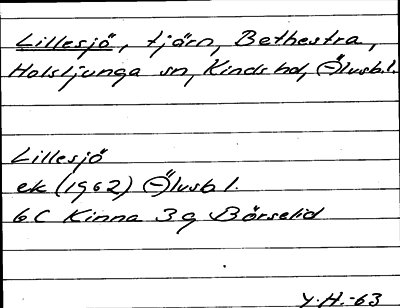 Lillesjö, tjärn, Bethestra,
Holsljunga sn, Kinds hd, Älvsb.l.
Lillesjö
ek (1962) Älvsb l.
6C Kinna 3 g Börselid
Y.H.-63